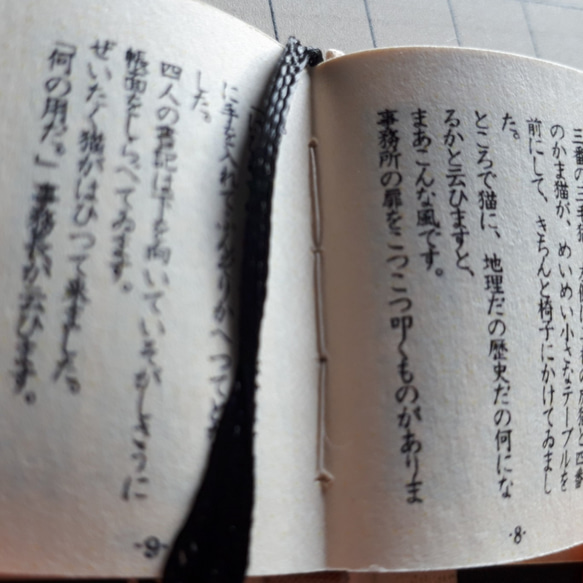 のかま猫が、めいめい小さなテーブルを
前にして、きちんと椅子にかけてゐまし
た。
ところで猫に、地理だの歴史だの何にな
るかと云ひますと、
まあこんな風です。
事務所の扉をこつこつ叩くものがありま
-8-
に手を入れて
した。
四人の書記は下を向いていそがしさうに
帳面をしらべてゐます。
ぜいたく猫がはひつて来ました。
「何の用だ。」事務長が云ひます。
-9-